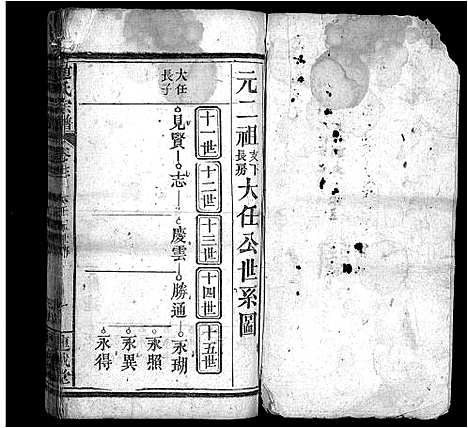 元二祖支下長房大任公世系圖
十一世
十二世
十三世
十四世
十五世
大任長子
見賢
志
慶雲
勝通
永瑚
永照
永異
永得
氏宗譜